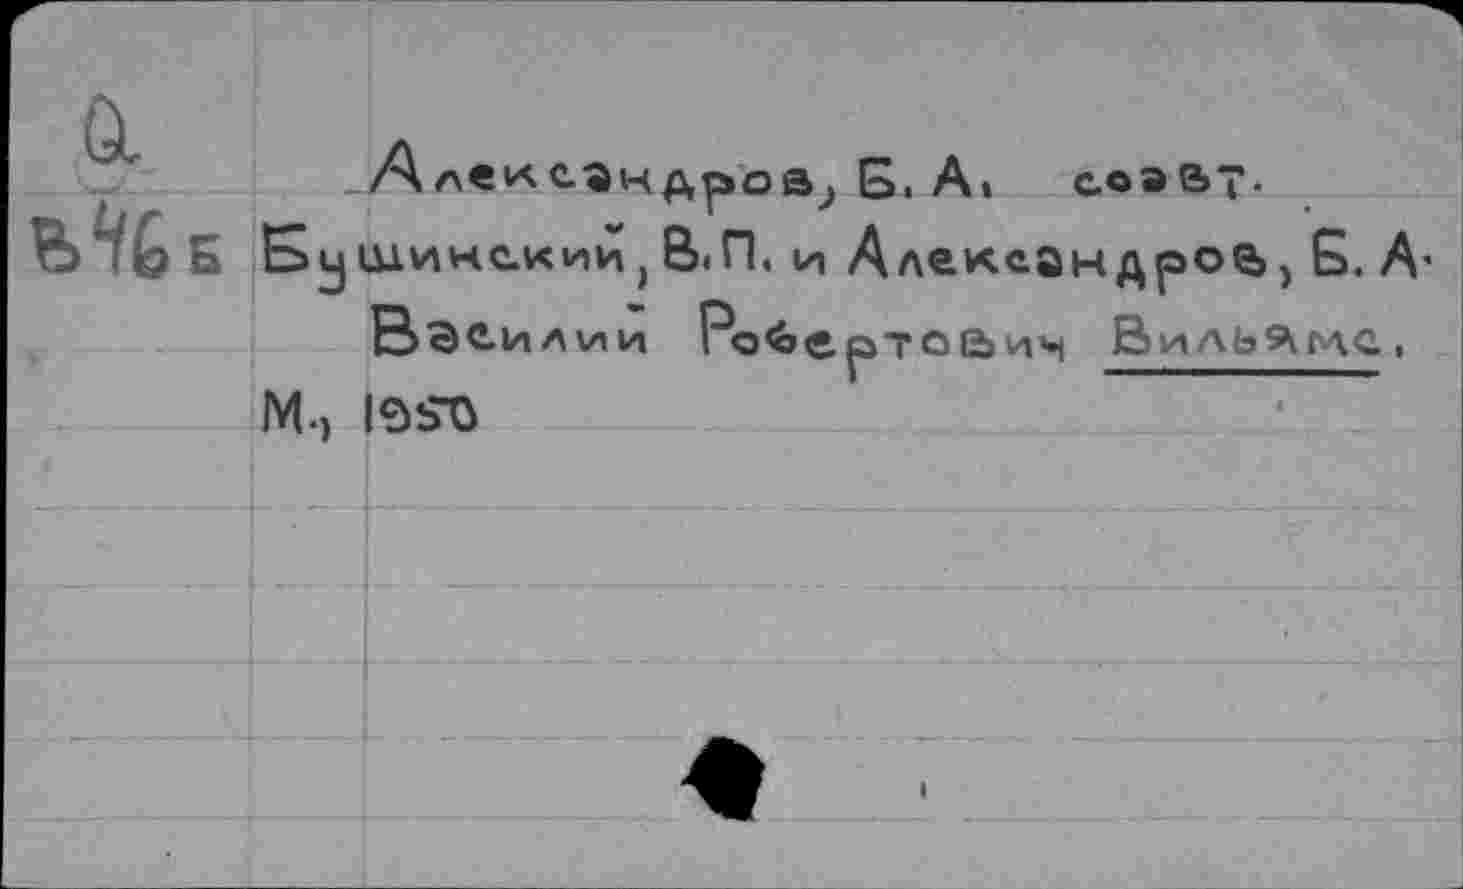 а
Александров, Б. А. соавт.
В46 Б Бушинский, В.П. и Александров, Б. А.
Василий Робертович Вильямс.
М., 1950